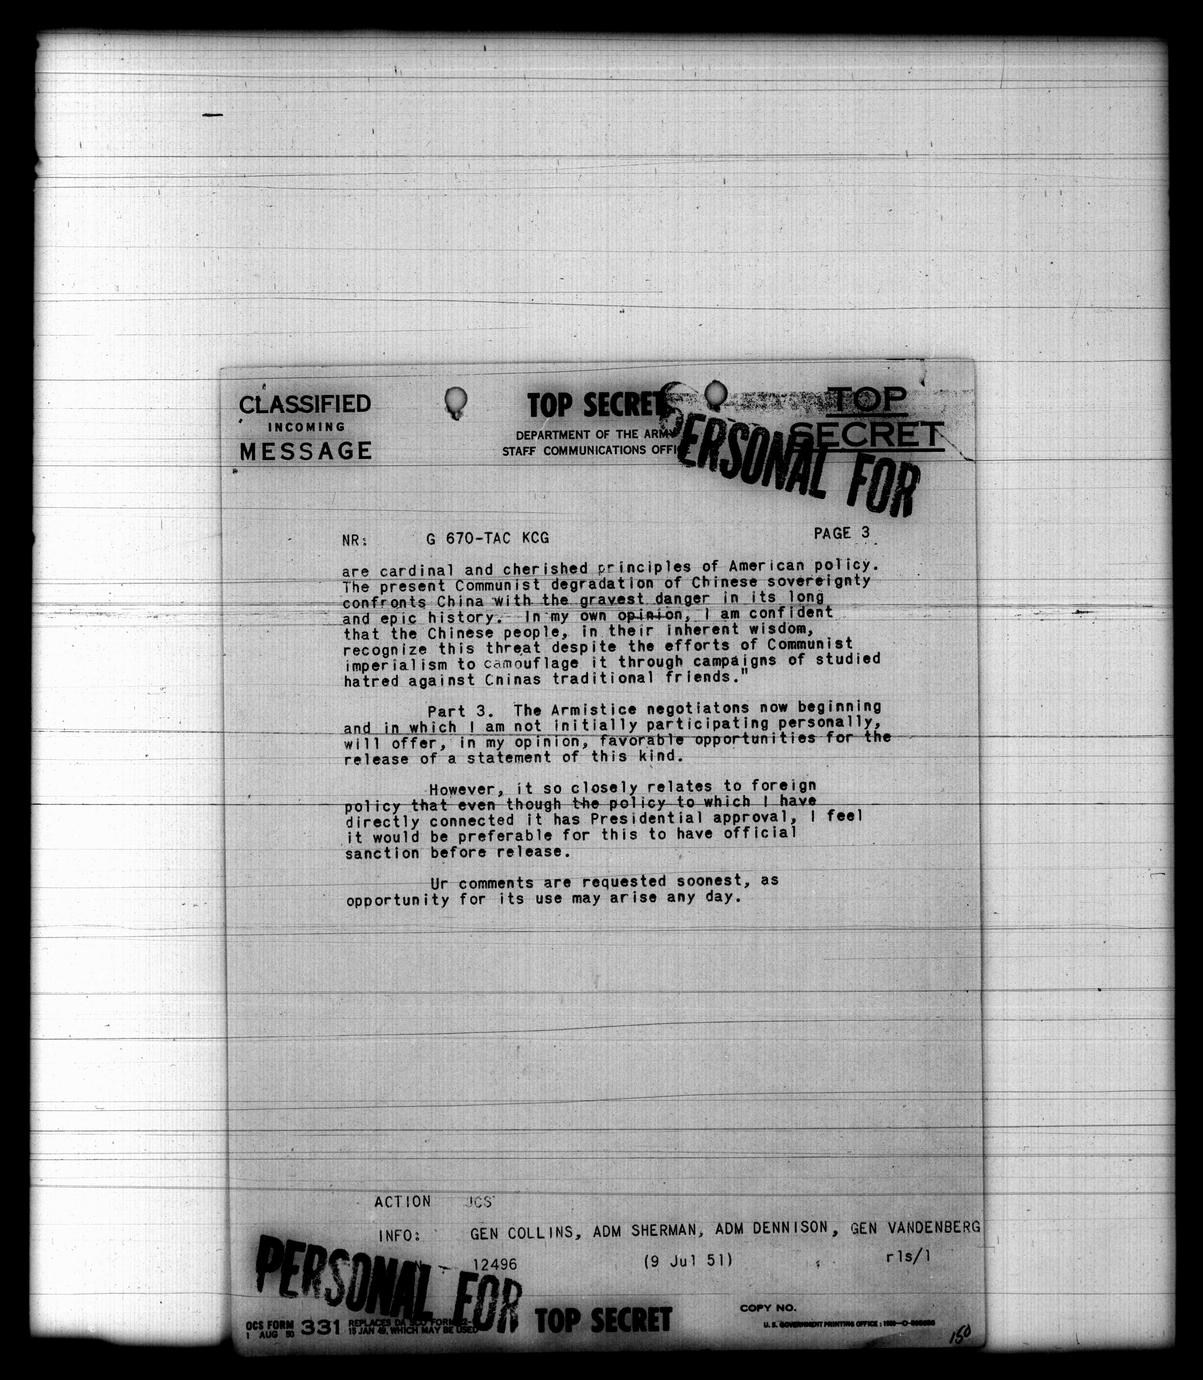 CLASSIFIED
INCOMING
MESSAGE
TOP SECRET
DEPARTMENT OF THE ARMY
STAFF COMMUNICATIONS OFFI
TOP
SECRET
PERSONAL FOR
NR: G 670-TAC KCG PAGE 3
are cardinal and cherished principles of American policy.
The present Communist degradation of Chinese sovereignty
confronts China with the gravest danger in its long
and epic history. In my own opinion, I am confident
that the Chinese people, in their inherent wisdom,
recognize this threat despite the efforts of Communist
imperialism to camouflage it through campaigns of studied
hatred against Cninas traditional friends."
Part 3. The Armistice negotiatons now beginning
and in which I am not initially participating personally,
will offer, in my opinion, favorable opportunities for the
release of a statement of this kind.
However, it so closely relates to foreign
policy that even though the policy to which I have
directly connected it has Presidential approval, I feel
it would be preferable for this to have official
sanction before release.
Ur comments are requested soonest, as
opportunity for its use may arise any day.
ACTION JCS
INFO: GEN COLLINS, ADM SHERMAN, ADM DENNISON, GEN VANDENBERG
12496 (9 Jul 51) rls/l
PERSONAL FOR
OCS FORM 331 REPLACES DA SCO FORM
1 AUG 50 15 JAN 49, WHICH MAY BE USED
TOP SECRET
COPY NO.
U. S. GOVERNMENT PRINTING OFFICE
150